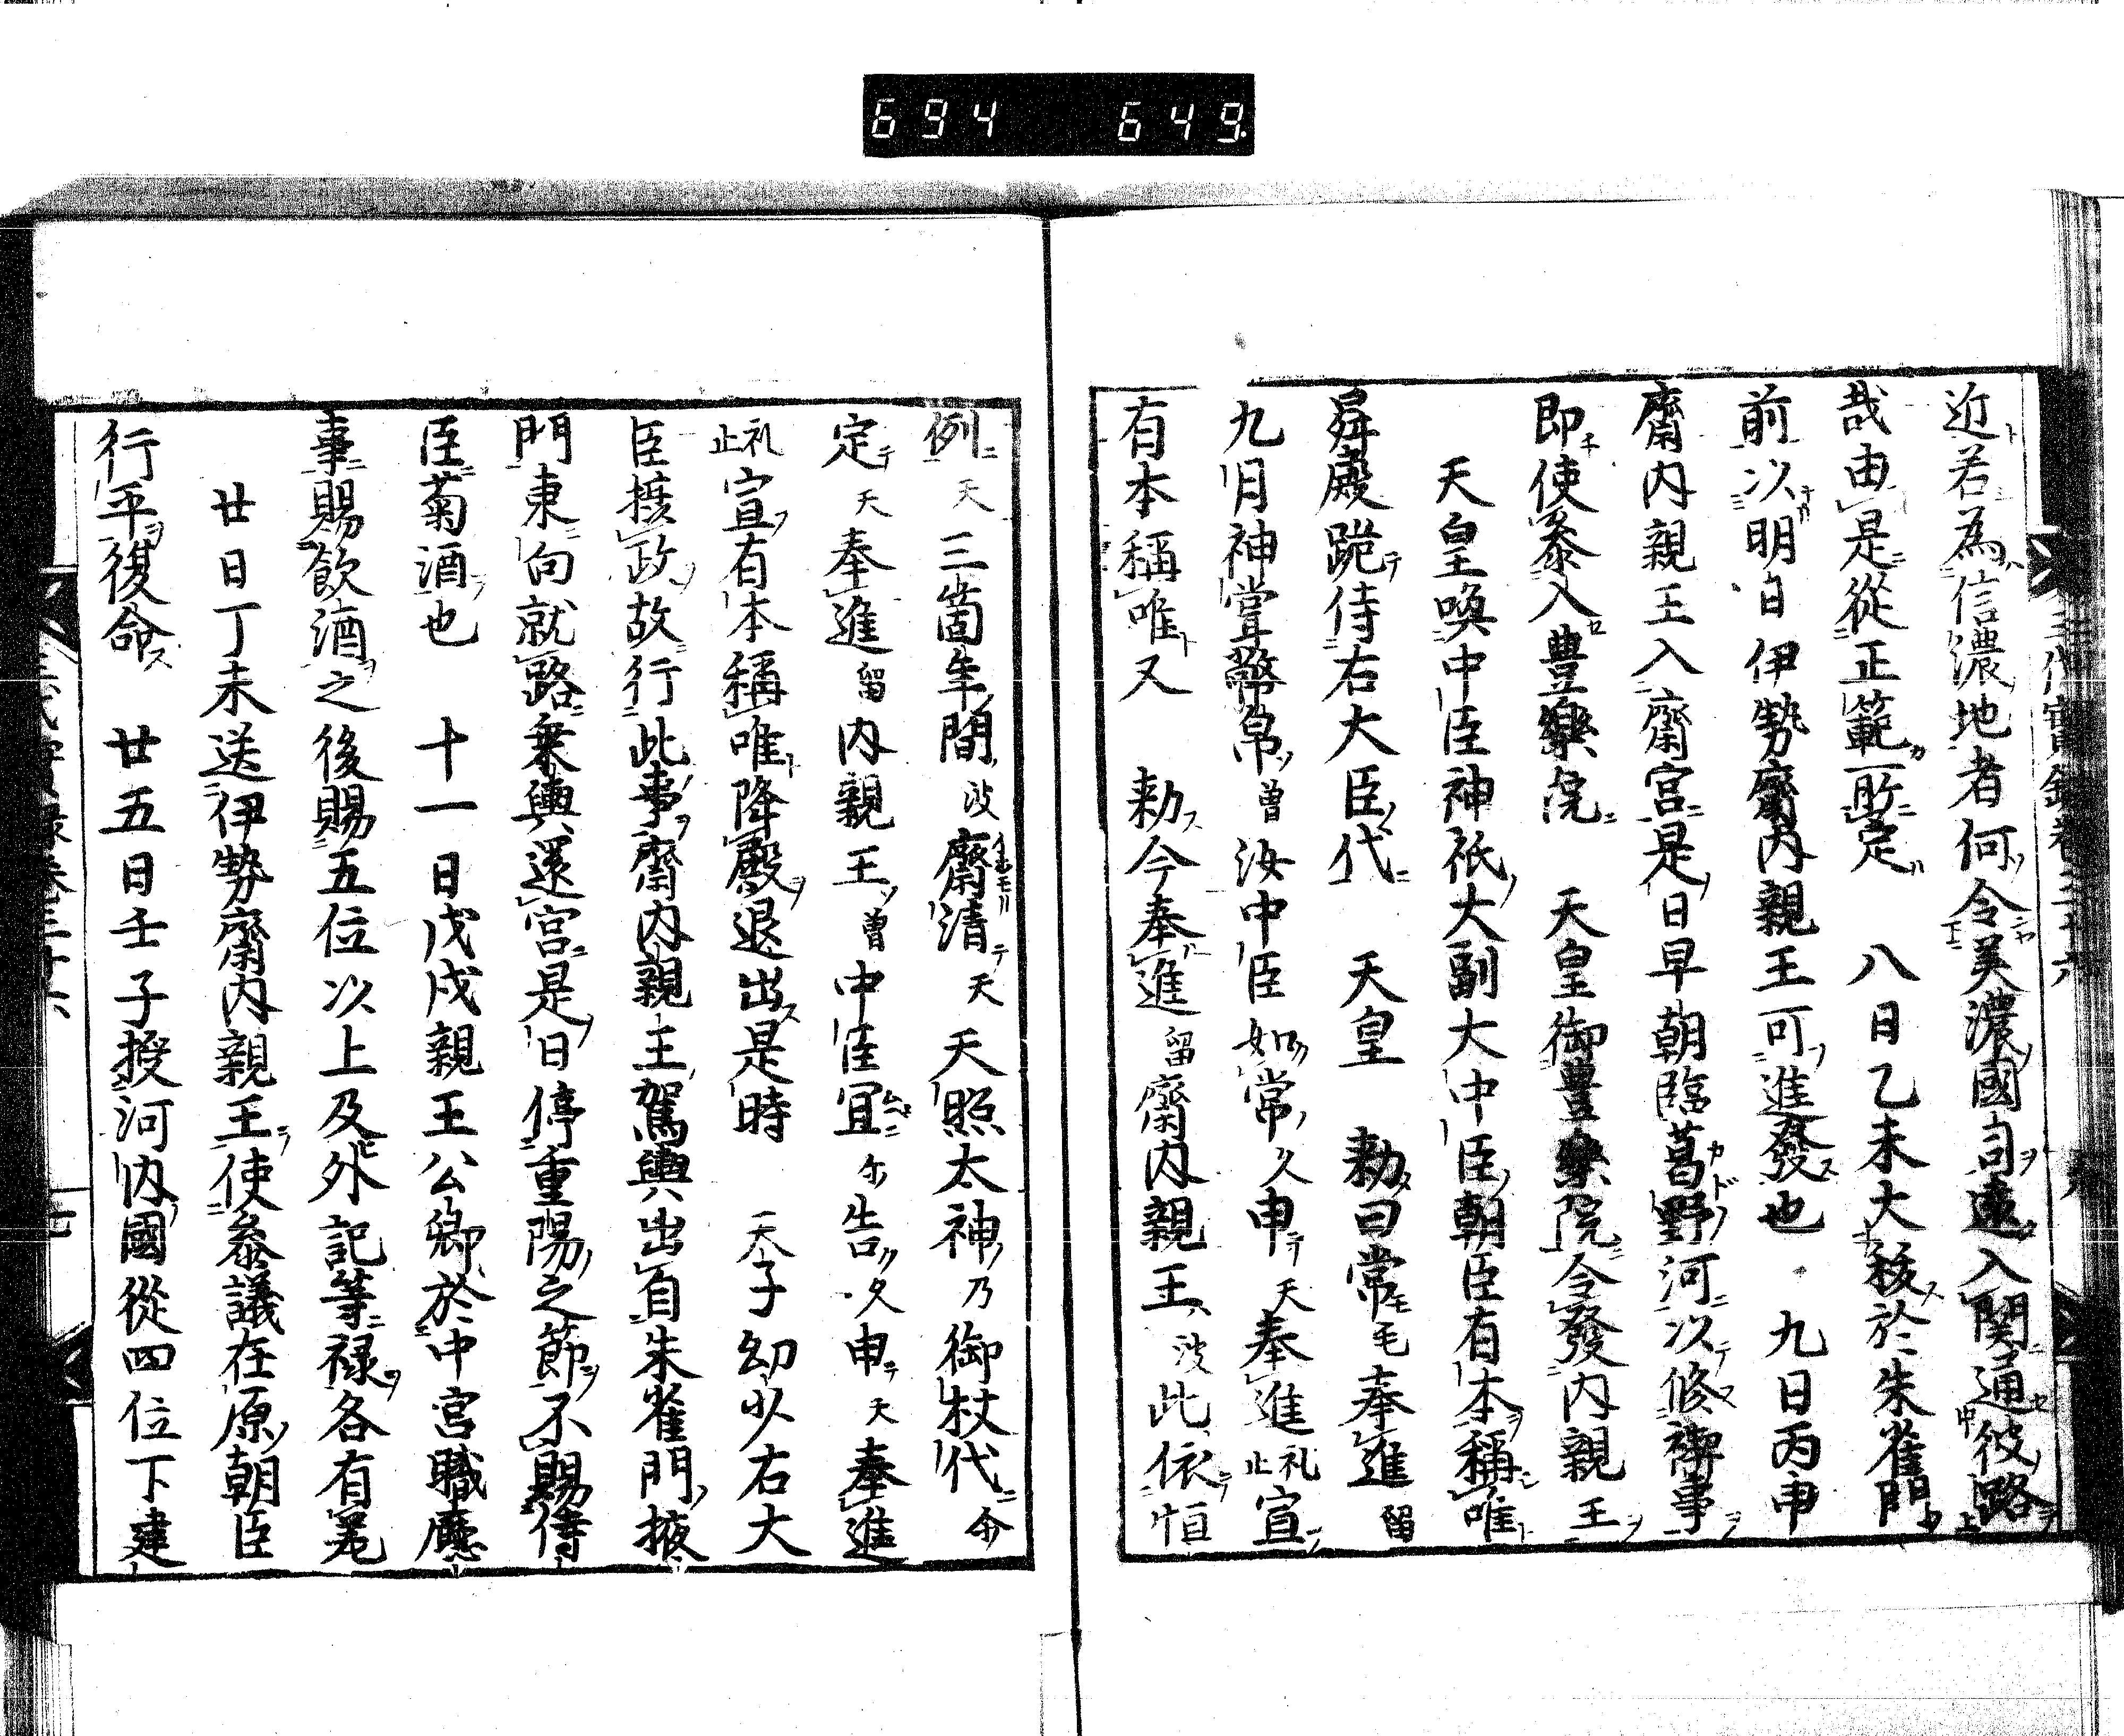 694 649
近若為信濃地者何令美濃國司遠入関通彼路
哉由是從正範所定 八日乙未大秡於朱雀門
前以明日伊勢齋内親王可進發也 九日丙申
齋内親王入齋宮是日早朝臨葛野河以修禊事
即使參入豊樂院 天皇御豊樂院令發内親王
天皇喚中臣神祇大副大中臣朝臣有本稱唯
昇殿跪侍右大臣代 天皇 勅曰常毛奉進留
九月神嘗幣帛曽汝中臣如常久申天奉進礼止宣
有本稱唯又 勅今奉進留齋内親王波此依恒
例天三箇年間波齋清天天照太神乃御杖代今
定天奉進留内親王曽中臣冝久告久申天奉進
礼止宣有本稱唯降殿退出是時 天子幼少右大
臣摂政故行此事齋内親王駕輿出自朱雀門掖
門東向就路乗輿還宮是日停重陽之節不賜侍
臣菊酒也 十一日戊戌親王公卿於中宮職廳
事賜飲酒之後賜五位以上及外記等禄各有差
廿日丁未送伊勢齋内親王使參議在原朝臣
行平復命 廿五日壬子授河内國從四位下建